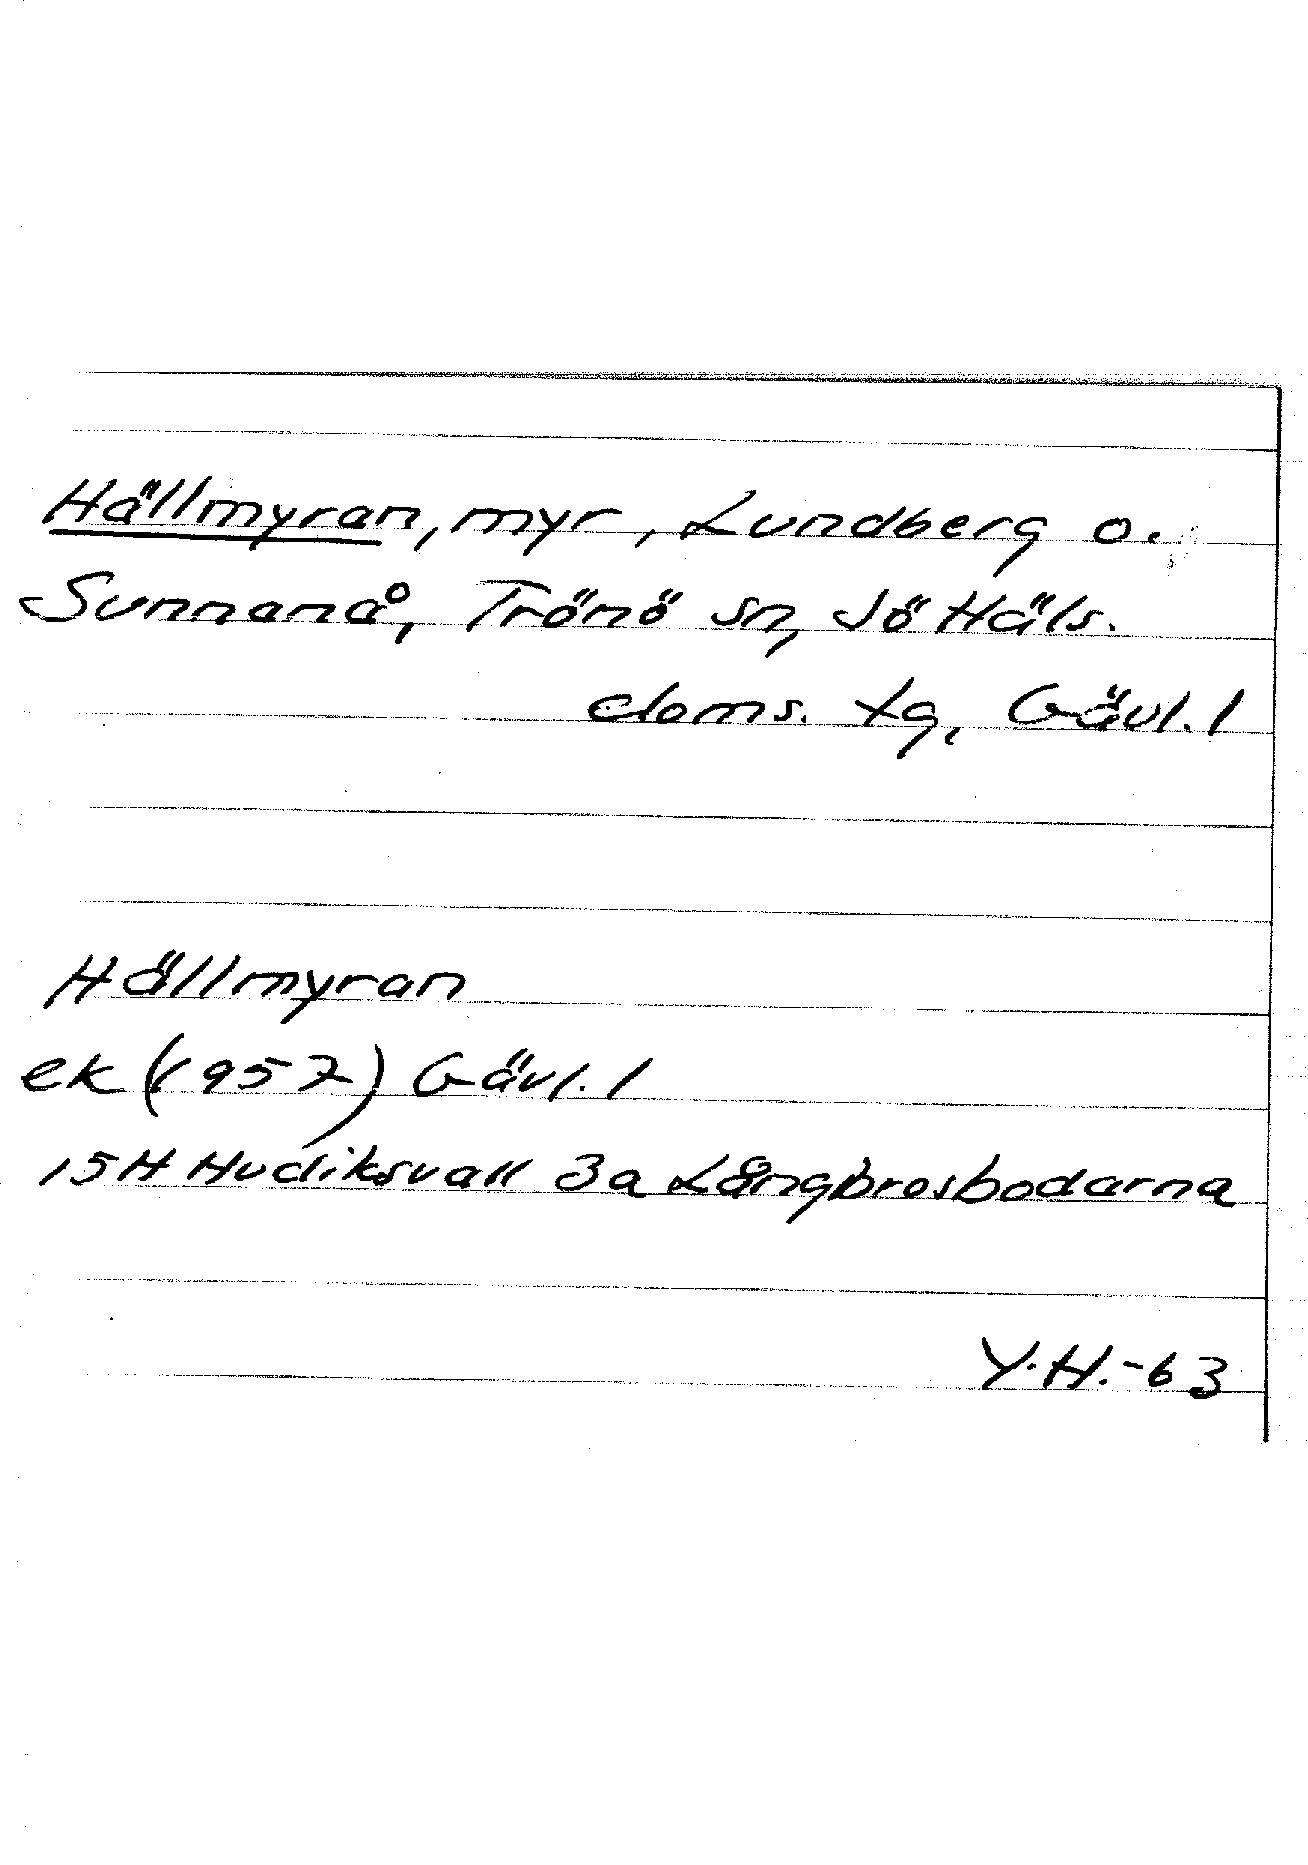 Hällmyran, myr, Lundberg o.
Sunnanå, Trönö sn, Sö Häls.
doms. tg, Gävl. l
Hällmyran
ek (1957) Gävl. l
15H Hudiksvall 3a Långbrosbodarna
Y.H.-63